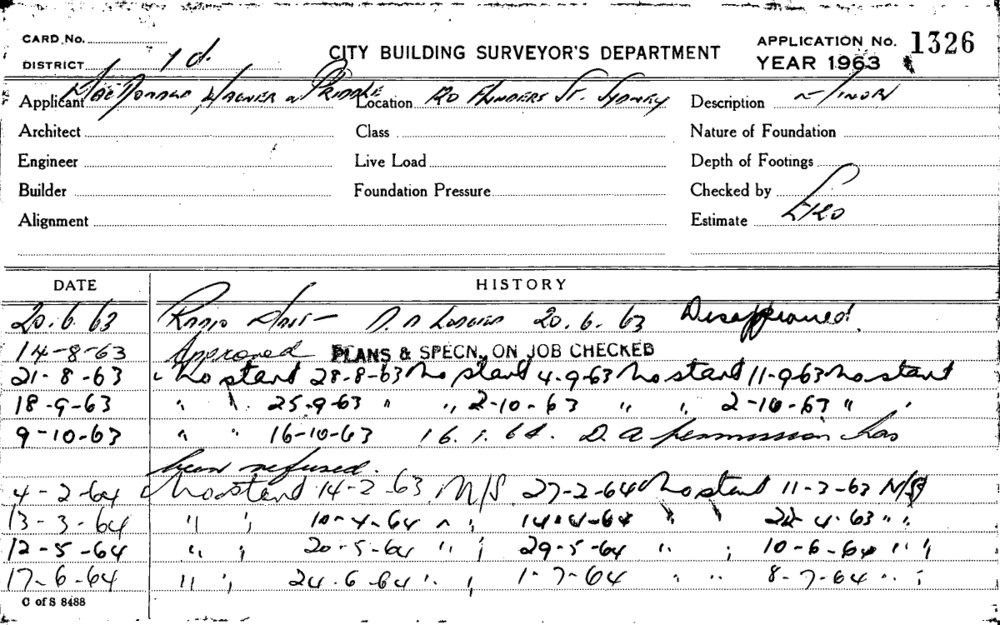 CARD No.
DISTRICT 1 d.
CITY BUILDING SURVEYOR'S DEPARTMENT
APPLICATION No. 1326
YEAR 1963
Applicant MacDonald Wagner & Priddle Location 120 Flinders St. Sydney Description Minor
Architect Class Nature of Foundation
Engineer Live Load Depth of Footings
Builder Foundation Pressure Checked by
Alignment Estimate £120
DATE HISTORY
20.6.63 Radio Mast – D.A Lodged 20.6.63 Disapproved.
14-8-63 Approved PLANS & SPECN. ON JOB CHECKED
21-8-63 No start 28-8-63 No start 4-9-63 No start 11-9-63 No start
18-9-63 " " 25-9-63 " " 2-10-63 " " 2-10-63 " "
9-10-63 " " 16-10-63 16.1.64. D.A permission has
been refused.
4-2-64 No start 14-2-63 N/S 27-2-64 No start 11-3-63 N/S
13-3-64 " " 10-4-64 " " 14-4-64 " " 22-4-63 " "
12-5-64 " " 20-5-64 " " 29-5-64 " " 10-6-64 " "
17-6-64 " " 24-6-64 " " 1-7-64 " " 8-7-64 " "
C of S 8488